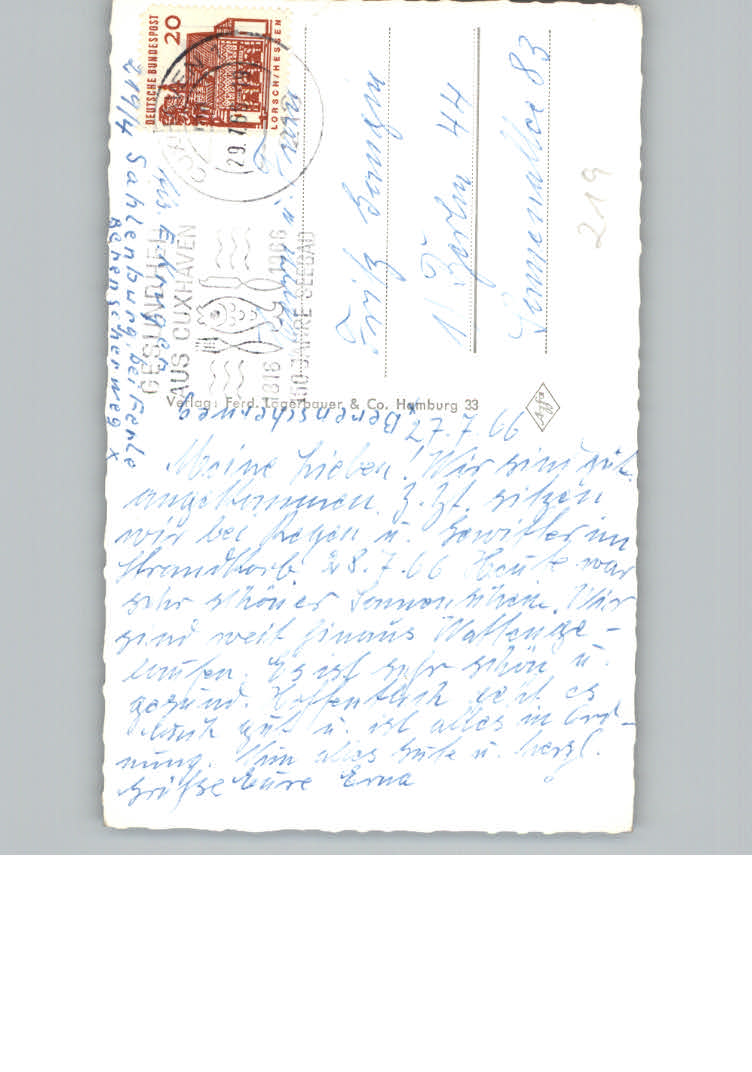 DEUTSCHE BUNDESPOST
20
LORSCH/HESSEN
CUXHAVEN
29.7.66
GESUNDHEIT
AUS CUXHAVEN
1816 1966
150 JAHRE SEEBAD
2191/4 Sahlenburg, bei Ferle
Berenscherweg x
u.
Fritz
1 Berlin 44
Sonnenallee 83
219
Verlag: Ferd. Lagerbauer & Co. Hamburg 33
Agfa
Berenscherweg
27.7.66
Meine Lieben! Wir sind gut
angekommen. Z. Zt. sitzen
wir bei Regen u. Gewitter im
Strandkorb 28.7.66 Heute war
sehr schöner Sonnenschein. Wir
sind weit hinaus Watten ge-
laufen. Es ist sehr schön u.
gesund. Hoffentlich geht es
Euch gut u. ist alles in Ord-
nung. Nun alles Gute u. herzl.
Grüße Eure Erna